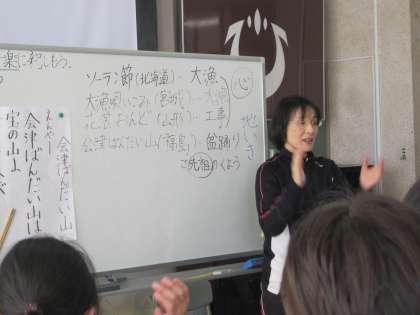 楽に親しもう。
ソーラン節(北海道)- 大漁
大漁唄いこみ(宮城)- 大漁
花笠おんど(山形)- 工事
会津ばんだい山(福島)- 盆踊り
ご先祖のくよう
心
地いき
会津ばんだい山
会津ばんだい山は
宝の山よ